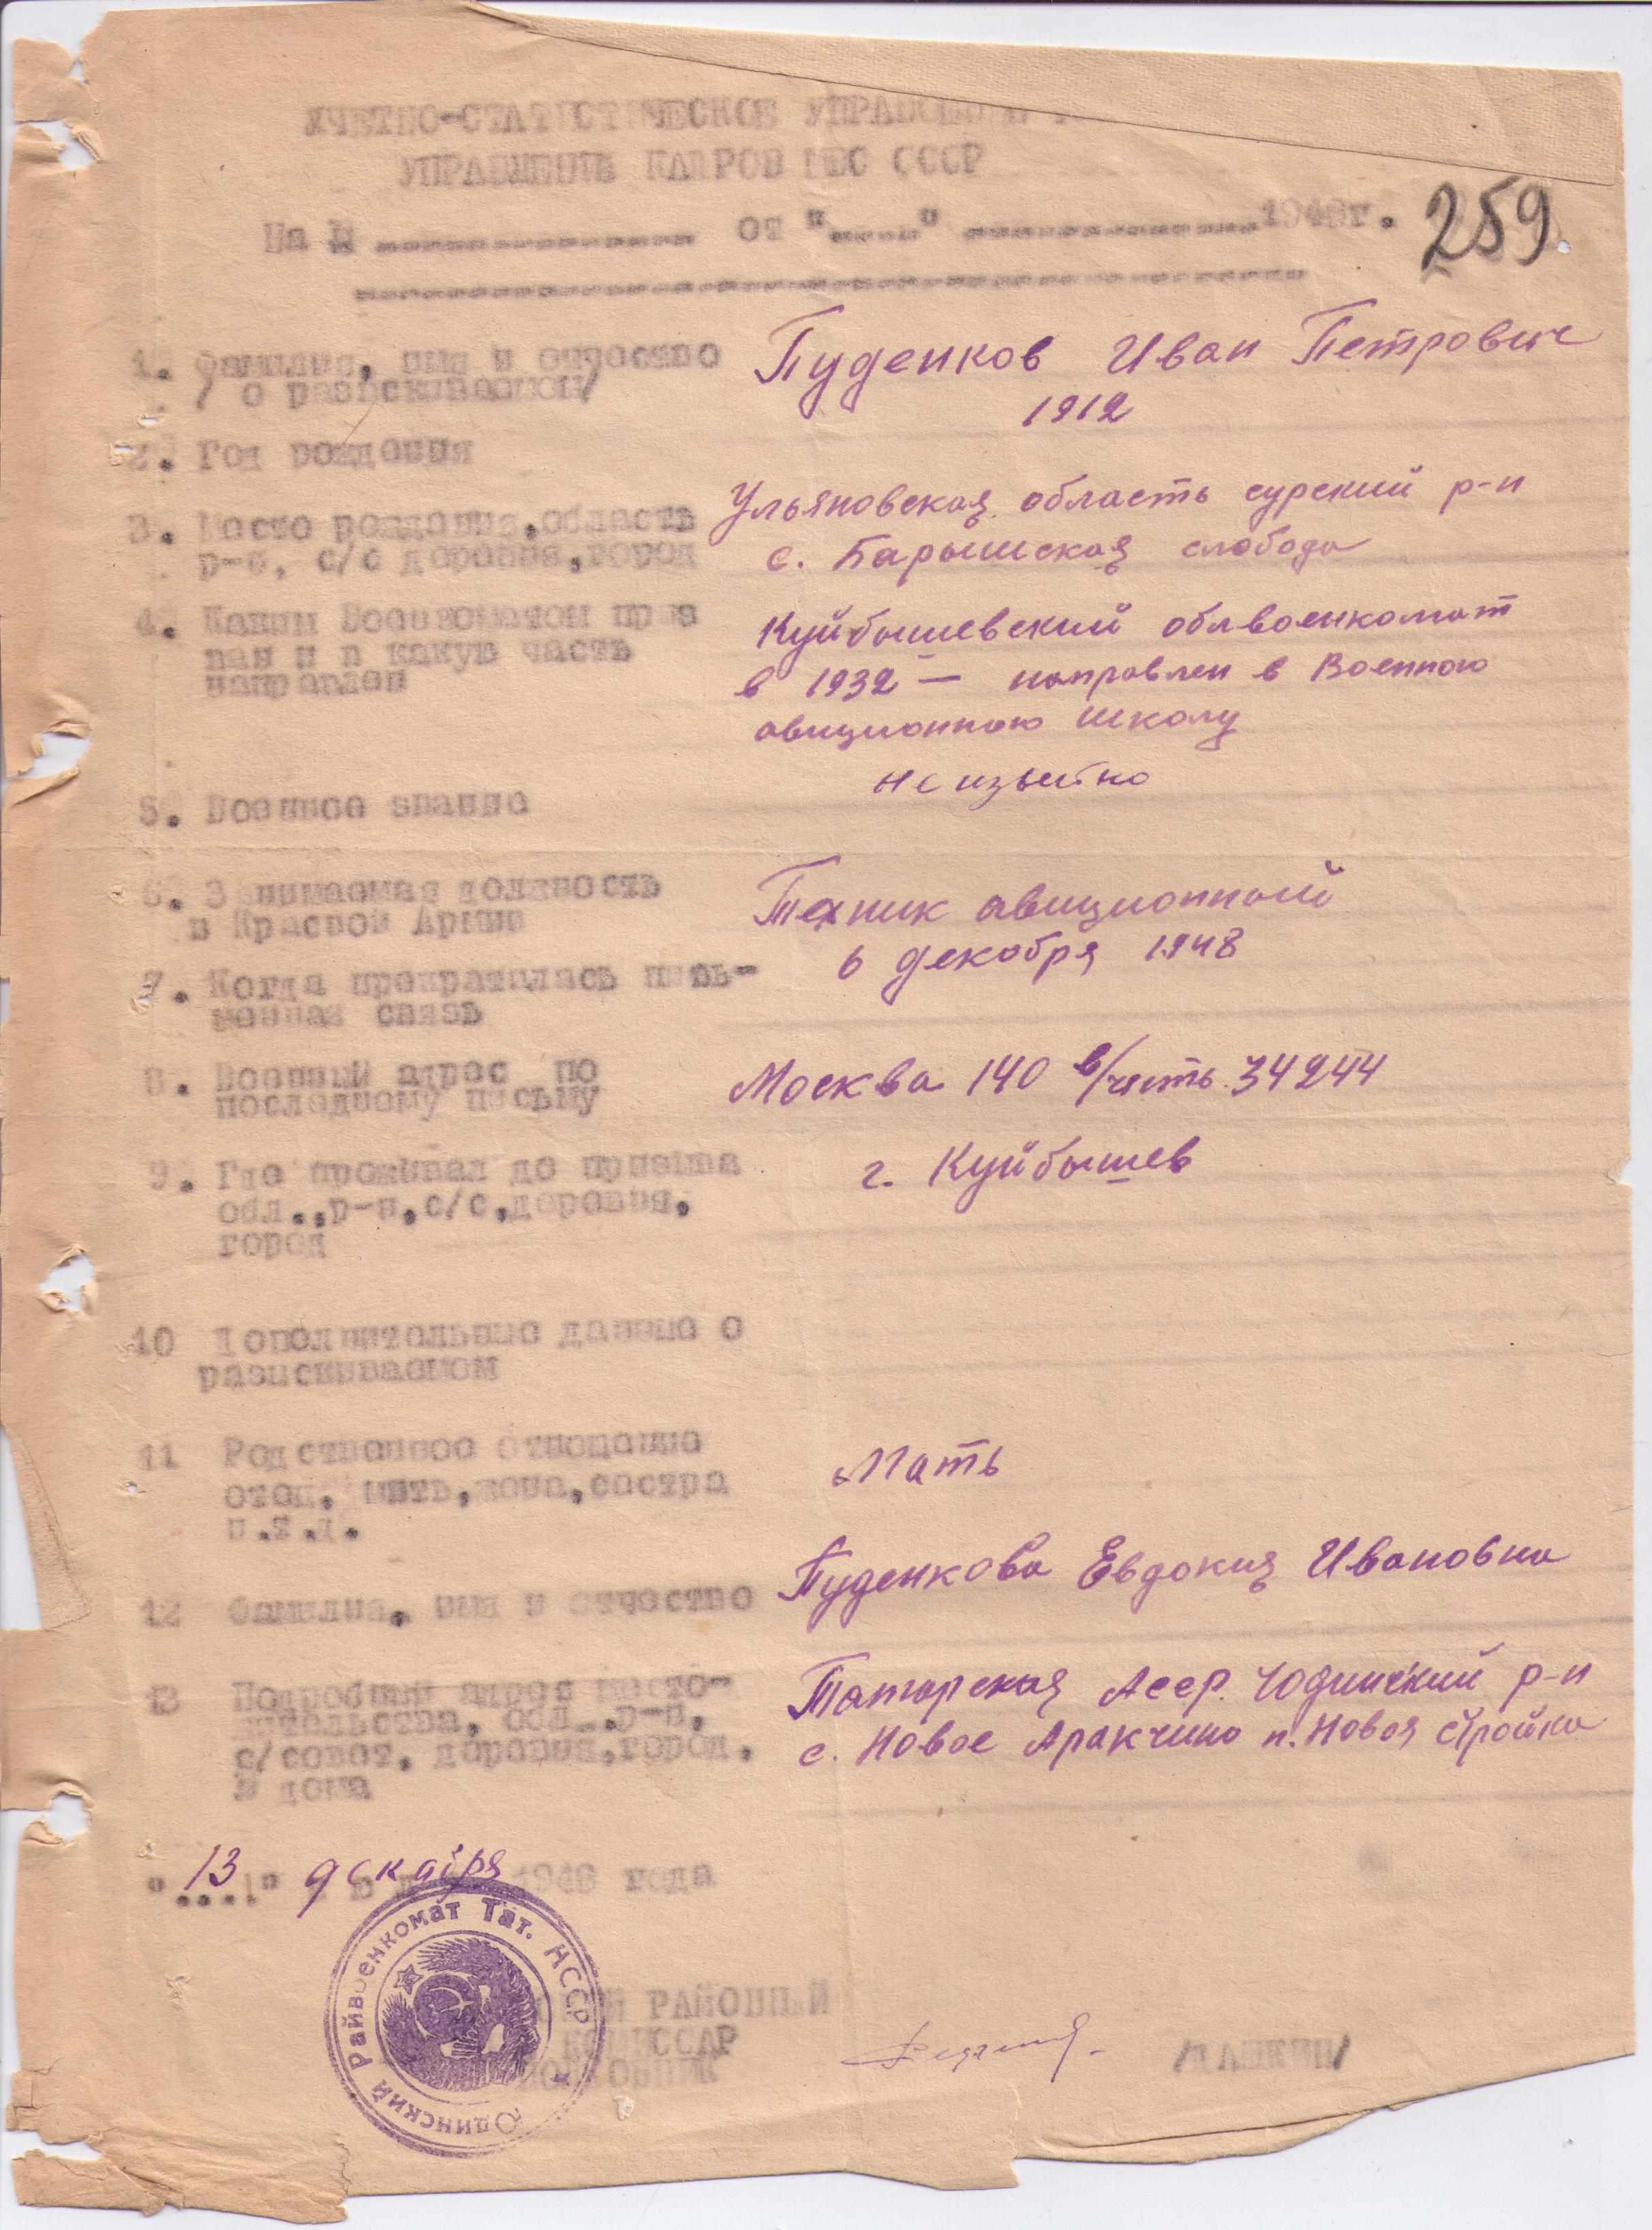 УЧЕТНО-СТАТИСТИЧЕСКОЕ
УПРАВЛЕНИЕ КАДРОВ МВС СССР
259
На № от " " 194 г.
1. Фамилия, имя и отчество Пуденков Иван Петрович
/ о разыскиваемом/
1912
2. Год рождения
3. Место рождения, область Ульяновская область сурский р-н
р-н, с/с деревня, город с. Барышская слобода
4. Каким Военкоматом приз Куйбышевский облвоенкомат
ван и в какую часть в 1932 — направлен в Военною
направлен
авиционною школу
неизвестно
5. Военное звание
6. Занимаемая должность Техник авиционный
в Красной Армии
6 декабря 1948
7. Когда прекратилась пись-
менная связь
8. Военный адрес по Москва 140 в/честь 34244
последнему письму
9. Где проживал до призыва г. Куйбышев
обл., р-н, с/с, деревня,
город
10 Дополнительные данные о
разыскиваемом
11 Родственное отношение Мать
отец, мать, жена, сестра
и.т.д.
12 Фамилия, имя и отчество Пуденкова Евдокия Ивановна
13 Подробный адрес место- Татарская Асср. Юдинский р-н
жительства, обл., р-н,
с/совет, деревня, город, с. Новое Аракчино п. Новоя стройка
№ дома
"13" декабря 1948 года
Юдинский Райвоенкомат Тат. АССР
РАЙОННЫЙ
КОМИССАР
ПОЛКОВНИК